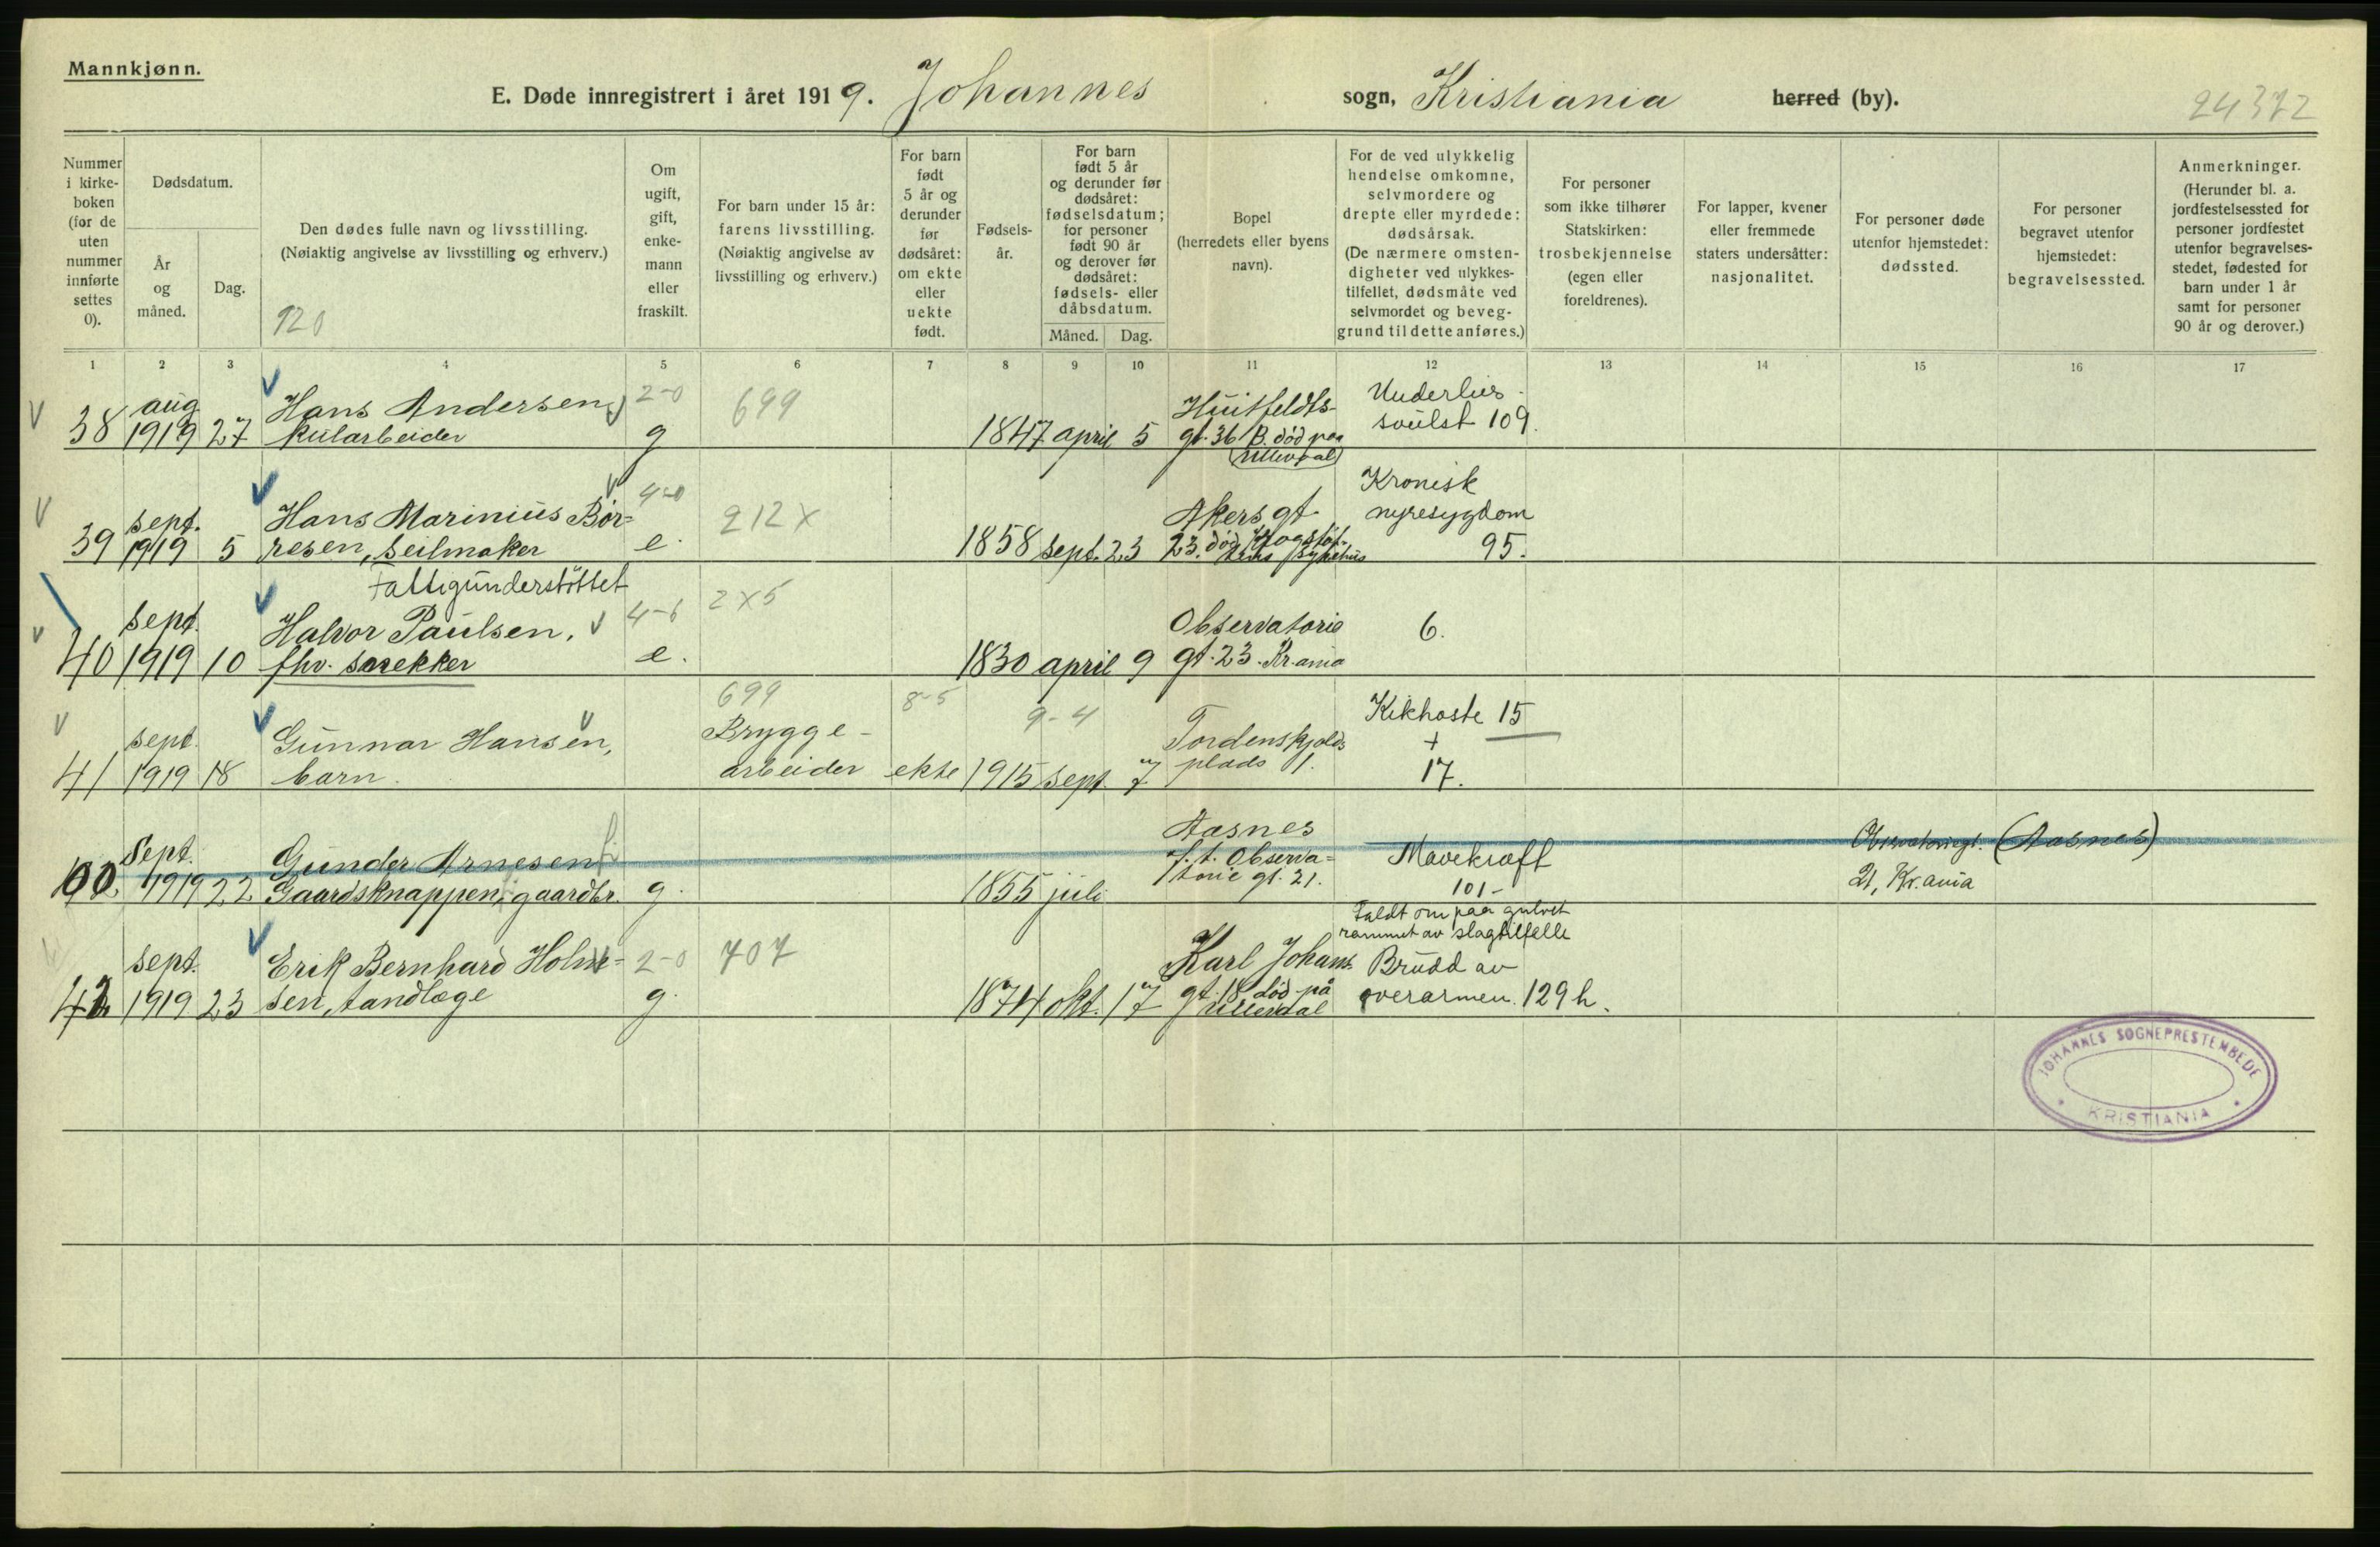 Mannkjønn.
E. Døde innregistrert i året 1919. Johannes sogn, Kristiania herred (by).
24372
Nummer i kirkeboken (for de uten nummer innførte settes 0).
Dødsdatum.
År og måned.
Dag.
Den dødes fulle navn og livsstilling.
(Nøiaktig angivelse av livsstilling og erhverv.)
120
Om ugift, gift, enkemann eller fraskilt.
For barn under 15 år: farens livsstilling.
(Nøiaktig angivelse av livsstilling og erhverv.)
For barn født 5 år og derunder før dødsåret: om ekte eller uekte født.
Fødselsår.
For barn født 5 år og derunder før dødsåret: fødselsdatum; for personer født 90 år og derover før dødsåret: fødsels- eller dåbsdatum.
Måned.
Dag.
Bopel
(herredets eller byens navn).
For de ved ulykkelig hendelse omkomne, selvmordere og drepte eller myrdede: dødsårsak.
(De nærmere omstendigheter ved ulykkestilfellet, dødsmåte ved selvmordet og beveggrund til dette anføres.)
For personer som ikke tilhører Statskirken: trosbekjennelse (egen eller foreldrenes).
For lapper, kvener eller fremmede staters undersåtter: nasjonalitet.
For personer døde utenfor hjemstedet: dødssted.
For personer begravet utenfor hjemstedet: begravelsessted.
Anmerkninger.
(Herunder bl. a. jordfestelsessted for personer jordfestet utenfor begravelsesstedet, fødested for barn under 1 år samt for personer 90 år og derover.)
1 2 3 4 5 6 7 8 9 10 11 12 13 14 15 16 17
aug Hans Andersen, 2-0 699 Huitfeldts- Underlivs-
38 1919 27 kularbeider g 1847 april 5 gt. 36 B. død paa svulst 109.
Ullevaal
sept. Hans Marinius Bør- 4-0 212 X Akers gt. Kronisk nyresygdom
39 1919 5 resen, seilmaker e. 1858 sept. 23 23. død 95.
Fattigunderstöttet
sept. Halvor Paulsen, 4-6 2x5 Observatorie 6.
40 1919 10 fhv. e. 1830 april 9 gt. 23. Kr.ania
699 8-5 9-4 Kikhoste 15
sept. Gunnar Hansen, Brygge- Tordenskjolds +
41 1919 18 barn. arbeider ekte 1915 sept. 7 plads 1. 17.
Sept. Gunder Arnesen Aasnes Mavekræft Observatoriegt. (Aasnes)
1919 22 Gaardsknappen, gaardbr. g. 1855 juli f.t. Observa- torie gt. 21. 101- 21, Kr.ania
Faldt om paa gulvet
rammet av slagtilfelle
sept. Erik Bernhard Holm- 2-0 707 Karl Johans Brudd av
42 1919 23 sen, tandlæge g. 1874 okt. 17 gt. 18 død på overarmen. 129 h.
Ullevaal
JOHANNES SOGNEPRESTEMBEDE
KRISTIANIA